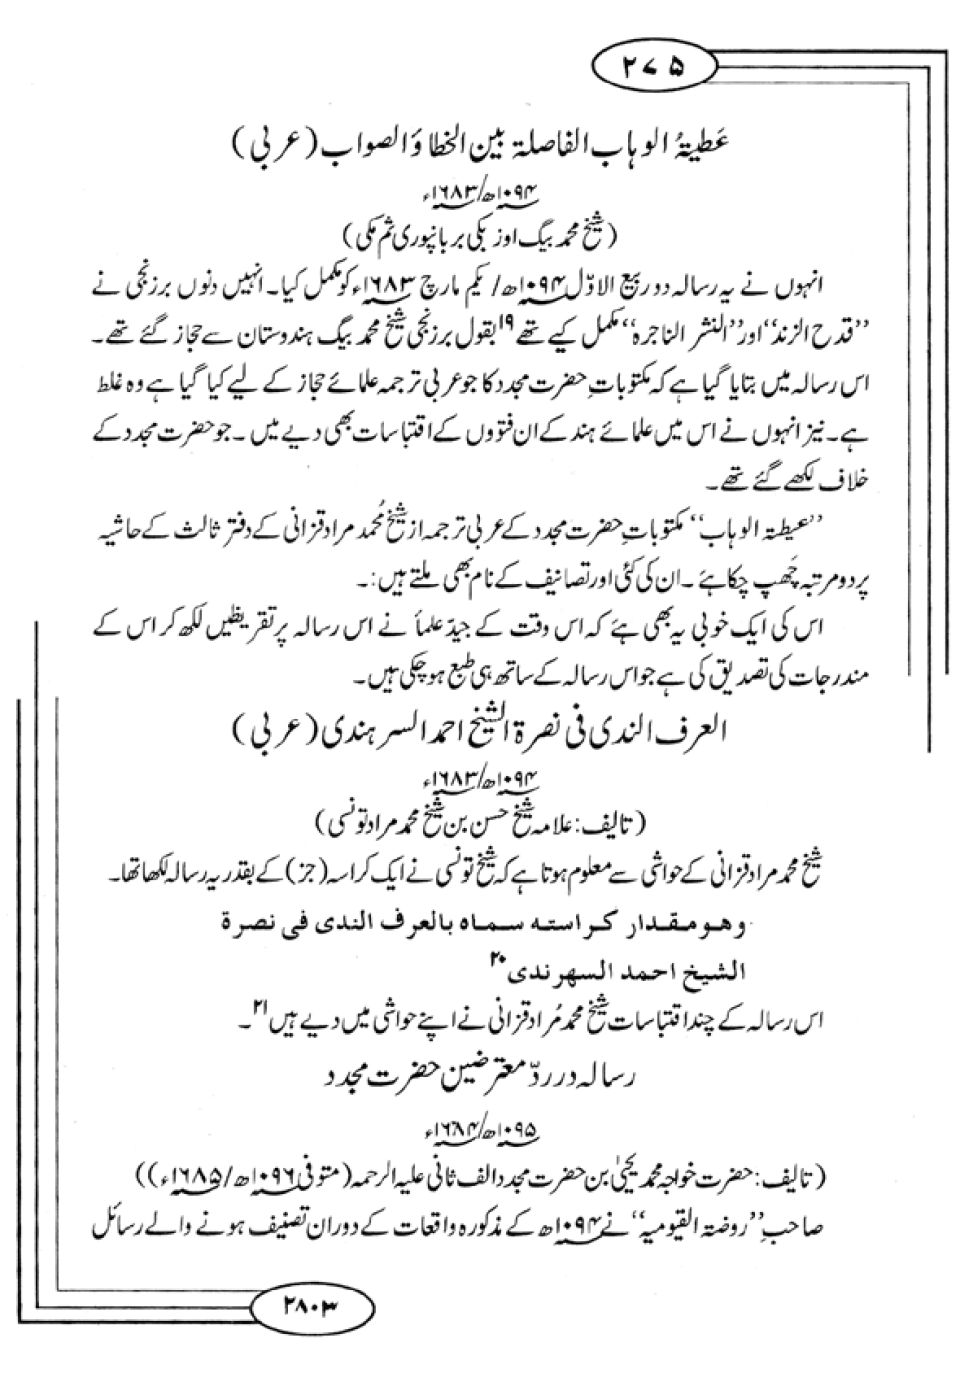 ۲۷۵
عَطیۃُ الوہاب الفاصلۃ بین الخطاؤ الصواب (عربی)
۱۰۹۴ھ/۱۶۸۳ء
(شیخ محمد بیگ اوزبکی برہانپوری ثم مکی)
انہوں نے یہ رسالہ دو ربیع الاوّل ۱۰۹۴ھ/ یکم مارچ ۱۶۸۳ء کو مکمل کیا۔ انہیں دنوں برزنجی نے
”قدح الزند“ اور ”النشر الناجرہ“ مکمل کیے تھے ۱۹ بقول برزنجی شیخ محمد بیگ ہندوستان سے حجاز گئے تھے۔
اس رسالہ میں بتایا گیا ہے کہ مکتوباتِ حضرت مجدد کا جو عربی ترجمہ علمائے حجاز کے لیے کیا گیا ہے وہ غلط
ہے۔ نیز انہوں نے اس میں علمائے ہند کے ان فتووں کے اقتباسات بھی دیے میں ۔ جو حضرت مجدد کے
خلاف لکھے گئے تھے۔
”عیطتہ الوہاب“ مکتوباتِ حضرت مجدد کے عربی ترجمہ از شیخ مُحمد مراد قزانی کے دفتر ثالث کے حاشیہ
پر دو مرتبہ چَھپ چکا ہے ۔ ان کی کئی اور تصانیف کے نام بھی ملتے ہیں:۔
اس کی ایک خوبی یہ بھی ہے کہ اس وقت کے جیدّ علمأ نے اس رسالہ پر تقریظیں لکھ کر اس کے
مندرجات کی تصدیق کی ہے جو اس رسالہ کے ساتھ ہی طبع ہو چکی ہیں۔
العرف الندی فی نصرۃ الشیخ احمد السرہندی (عربی)
۱۰۹۴ھ/۱۶۸۳ء
(تالیف: علامہ شیخ حسن بن شیخ محمد مراد تونسی)
شیخ محمد مراد قزانی کے حواشی سے معلوم ہوتا ہے کہ شیخ تونسی نے ایک کراسہ (جز) کے بقدر یہ رسالہ لکھا تھا۔
وهو مقدار كراسته سماه بالعرف الندى فى نصرة
الشيخ احمد السهرندى ۲۰
اس رسالہ کے چند اقتباسات شیخ محمد مُراد قزانی نے اپنے حواشی میں دیے ہیں ۲۱۔
رسالہ در ردّ معترضین حضرت مجدد
۱۰۹۵ھ/۱۶۸۴ء
(تالیف: حضرت خواجہ محمد یحیٰی بن حضرت مجدد الف ثانی علیہ الرحمہ (متوفی ۱۰۹۶ھ/۱۶۸۵ء))
صاحبِ ”روضتہ القیومیہ“ نے ۱۰۹۴ھ کے مذکورہ واقعات کے دوران تصنیف ہونے والے رسائل
۲۸۰۳